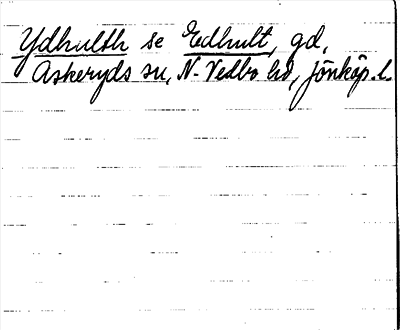 Ydhulth se Edhult, gd,
Askeryds sn, N. Vedbo hd, Jönköp. l.